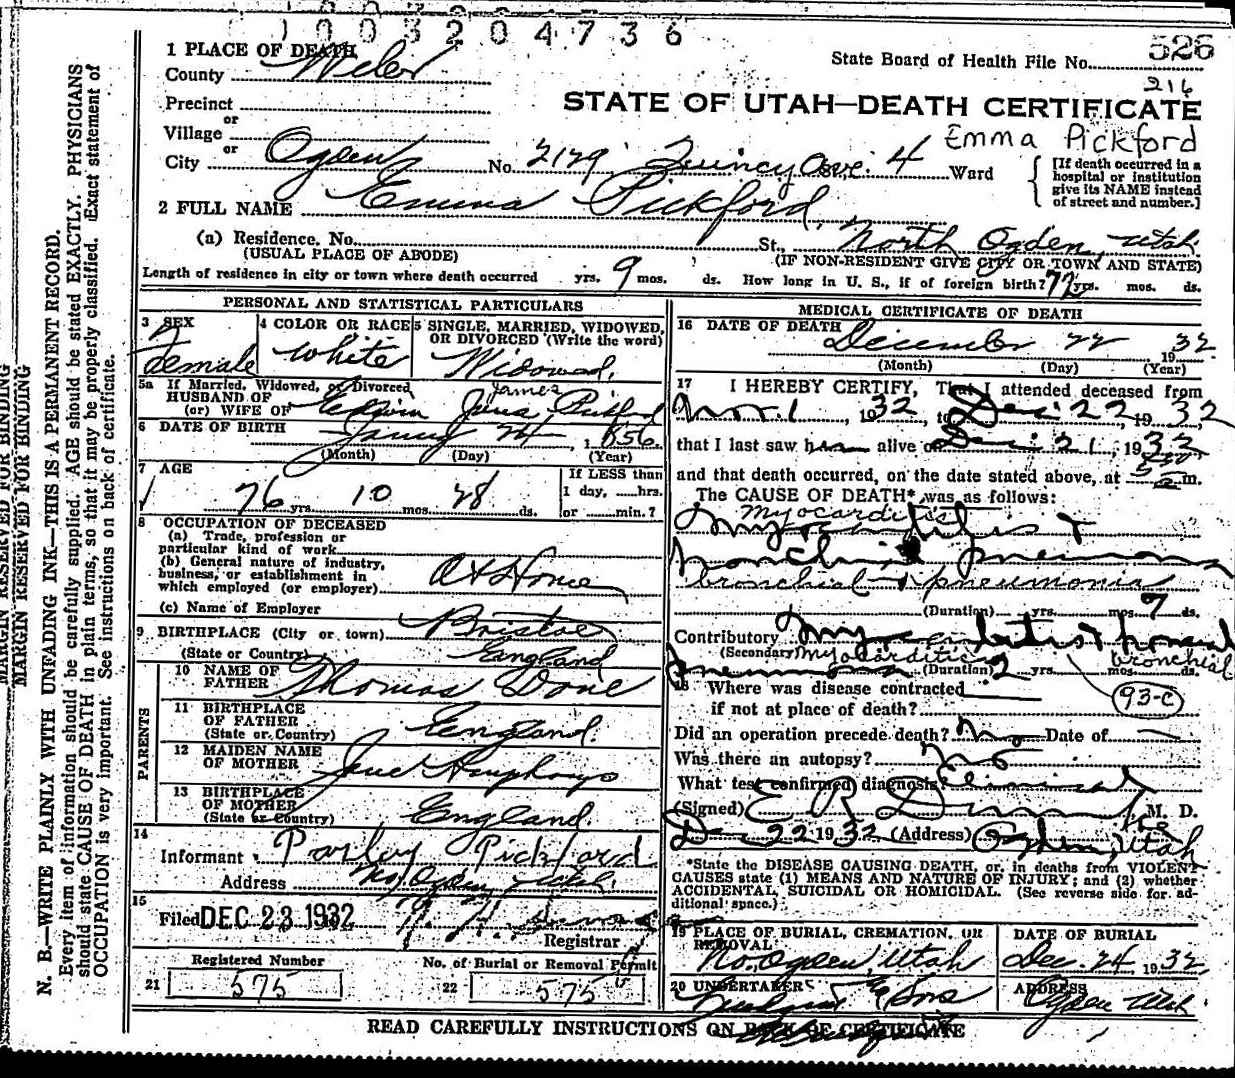 1003204736
1 PLACE OF DEATH
County Weber
State Board of Health File No. 526
216
Precinct
or
STATE OF UTAH—DEATH CERTIFICATE
Village
or
Emma Pickford
City Ogden No. 2179 Quincy Ave. 4 Ward
[If death occurred in a hospital or institution give its NAME instead of street and number.]
2 FULL NAME Emma Pickford
(a) Residence. No. St., North Ogden, Utah.
(USUAL PLACE OF ABODE) (IF NON-RESIDENT GIVE CITY OR TOWN AND STATE)
Length of residence in city or town where death occurred yrs. 9 mos. ds. How long in U. S., if of foreign birth? 72 yrs. mos. ds.
PERSONAL AND STATISTICAL PARTICULARS
3 SEX
Female
4 COLOR OR RACE
White
5 SINGLE, MARRIED, WIDOWED, OR DIVORCED (Write the word)
Widowed.
5a If Married, Widowed, or Divorced
HUSBAND OF
(or) WIFE OF Edwin James Pickford
6 DATE OF BIRTH Jany 24 1856
(Month) (Day) (Year)
7 AGE
76 yrs. 10 mos. 28 ds.
If LESS than
1 day, ......hrs.
or ......min.?
8 OCCUPATION OF DECEASED
(a) Trade, profession or
particular kind of work
(b) General nature of industry,
business, or establishment in
which employed (or employer)
At Home
(c) Name of Employer
9 BIRTHPLACE (City or town) Bristol
(State or Country) England
PARENTS
10 NAME OF FATHER Thomas Done
11 BIRTHPLACE OF FATHER
(State or Country) England.
12 MAIDEN NAME OF MOTHER Jane Humphreys
13 BIRTHPLACE OF MOTHER
(State or Country) England.
14
Informant Parley Pickford
Address No. Ogden, Utah.
15
Filed DEC 23 1932
Registrar
Registered Number
21 575
No. of Burial or Removal Permit
22 575
MEDICAL CERTIFICATE OF DEATH
16 DATE OF DEATH December 22, 1932.
(Month) (Day) (Year)
17 I HEREBY CERTIFY, That I attended deceased from
Nov. 1, 1932 to Dec. 22, 1932
that I last saw her alive on Dec. 21, 1932
and that death occurred, on the date stated above, at a m.
The CAUSE OF DEATH* was as follows:
myocarditis
Myocarditis +
bronchial pneumonia
bronchial + pneumonia
(Duration) yrs. mos. 7 ds.
Contributory Myocarditis + bronchial
(Secondary) myocarditis bronchial
pneumonia (Duration) 2 yrs. mos. ds.
93-c
18 Where was disease contracted
if not at place of death?
Did an operation precede death? No Date of
Was there an autopsy? No
What test confirmed diagnosis? Clinical
(Signed) E R M. D.
Dec 22 1932 (Address) Ogden, Utah
*State the DISEASE CAUSING DEATH, or, in deaths from VIOLENT
CAUSES state (1) MEANS AND NATURE OF INJURY; and (2) whether
ACCIDENTAL, SUICIDAL OR HOMICIDAL. (See reverse side for ad-
ditional space.)
19 PLACE OF BURIAL, CREMATION, OR REMOVAL
No. Ogden, Utah
DATE OF BURIAL
Dec. 24, 1932
20 UNDERTAKER
& Sons
ADDRESS
Ogden Utah.
READ CAREFULLY INSTRUCTIONS ON BACK OF CERTIFICATE
MARGIN RESERVED FOR BINDING
MARGIN RESERVED FOR BINDING
N. B.—WRITE PLAINLY WITH UNFADING INK—THIS IS A PERMANENT RECORD.
Every item of information should be carefully supplied. AGE should be stated EXACTLY. PHYSICIANS
should state CAUSE OF DEATH in plain terms, so that it may be properly classified. Exact statement of
OCCUPATION is very important. See instructions on back of certificate.